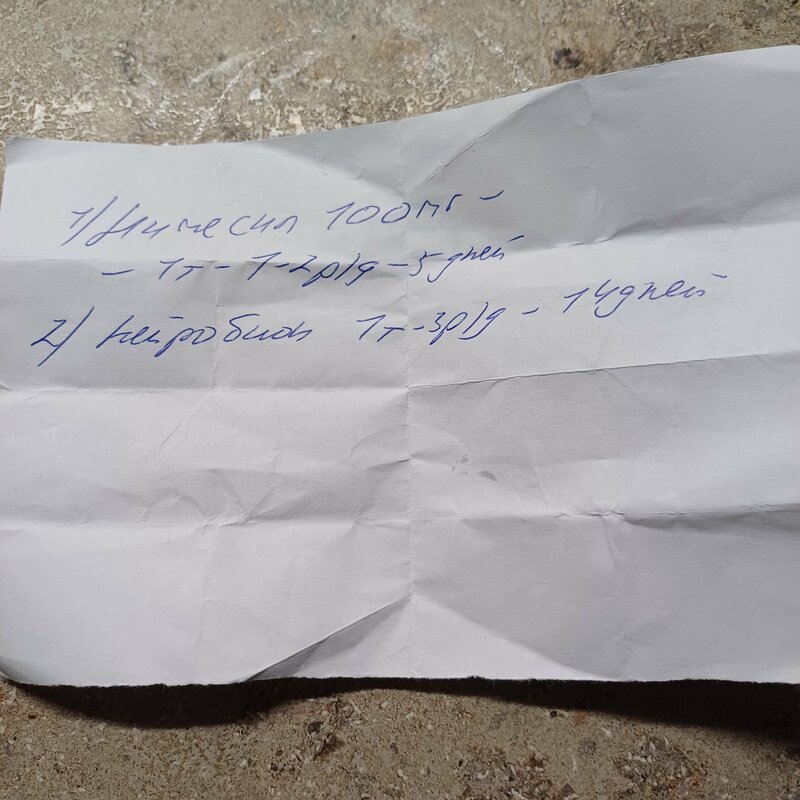 1) Нимесил 100мг -
- 1т - 1-2р/д - 5 дней
2) Нейробион 1т - 3р/д - 14 дней